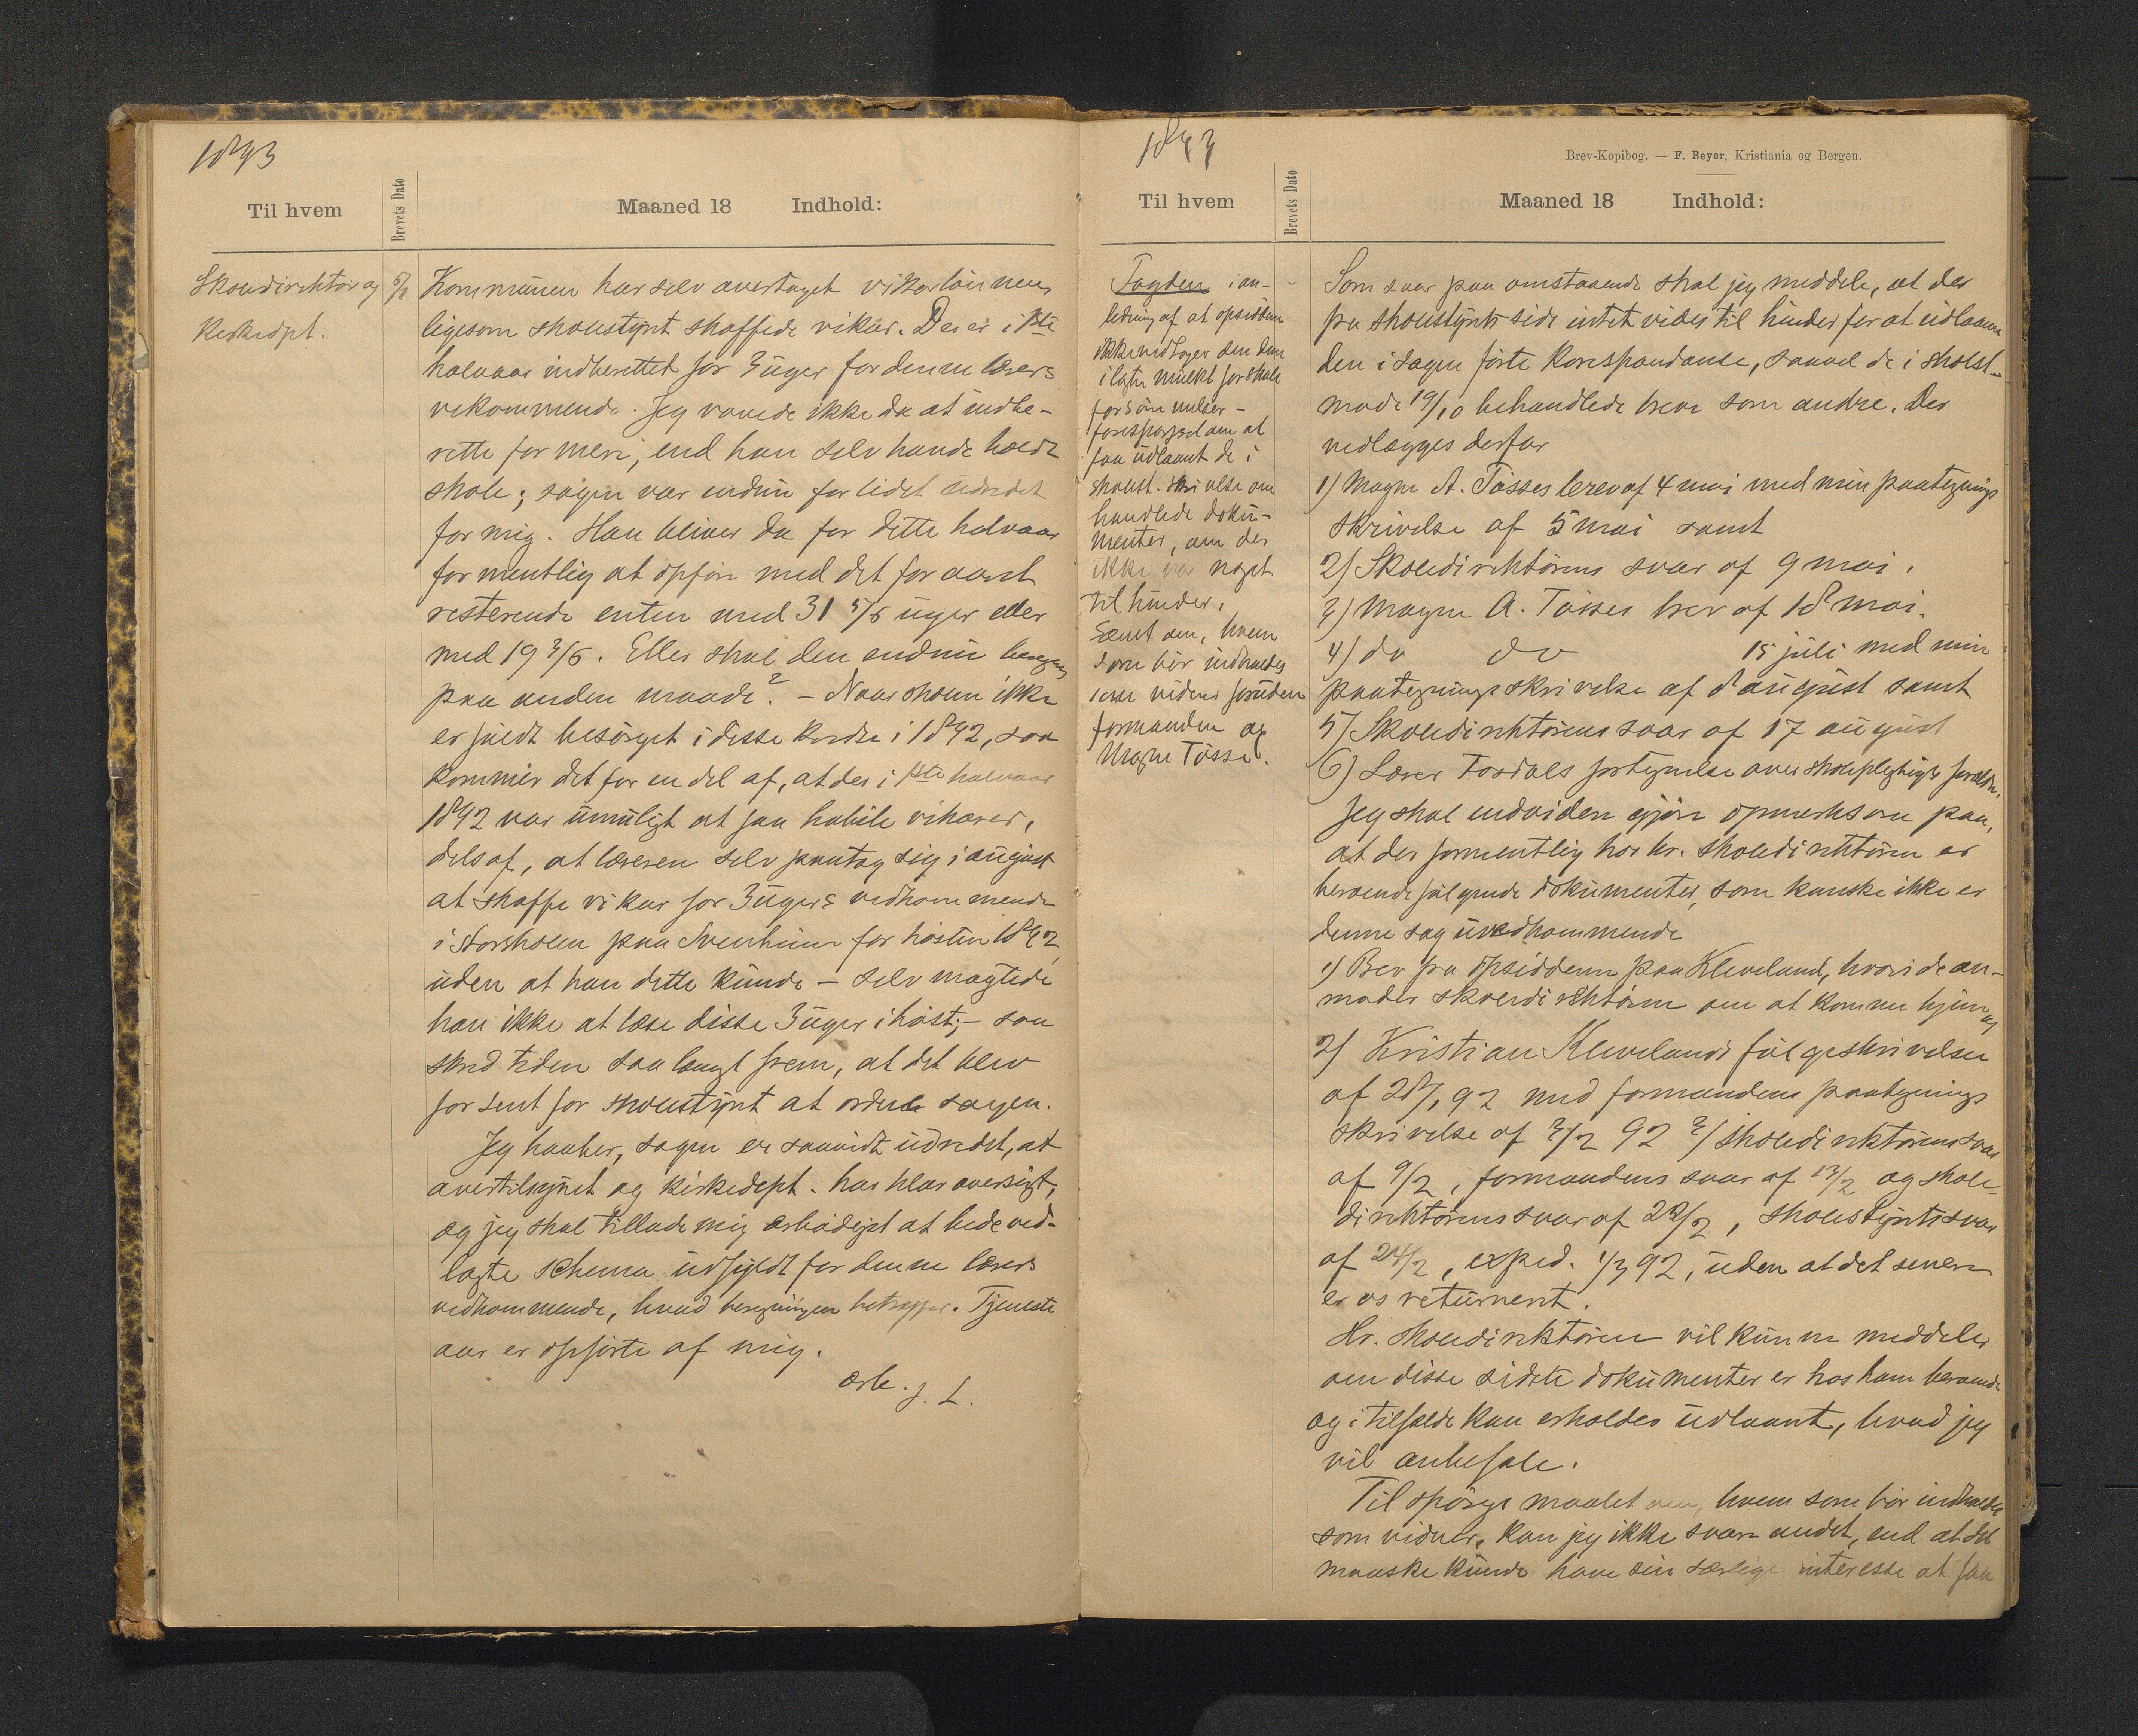 1893
Til hvem
Brevets Dato
Maaned 18 Indhold:
Skoledirektør og
Kirkedpt.
Kommunen har selv overtaget vikarlønnen,
ligesom skolestyret skaffede vikar. Der er i 1ste
halvaar indberettet for 3 uger for denne lærers
vekommende. Jeg vovede ikke da at indbe-
rette for mere, end han selv havde holdt
skole; sagen var endnu for lidet udredet
for mig. Han bliver da for dette halvaar
formentlig at opføre med det for aaret
resterende enten med 31 5/6 uger eller
med 19 3/6. Eller skal den endnu beregnes
paa anden maade? – Naar skolen ikke
er fuldt besørget i disse kredse i 1892, saa
kommer det for en del af, at der i 1ste halvaar
1892 var umuligt at faa habile vikarer,
dels af, at læreren selv paatog sig i august
at skaffe vikar for 3 ugers vedkommende
i Storskolen paa Svenheim for høsten 1892
uden at han dette kunde – selv magtede
han ikke at læse disse 3 uger i høst; – saa
skred tiden saa langt frem, at det blev
for sent for skolestyret at ordne sagen.
Jeg haaber, sagen er saavidt udredet, at
overtilsynet og kirkedept. har klar oversigt,
og jeg skal tillade mig ærbødigst at bede ved-
lagte schema udfyldt for denne lærers
vedkommende, hvad beregningen betræffer. Tjeneste
aar er opførte af mig.
ærb. J. L.
1893
Brev-Kopibog. — F. Beyer, Kristiania og Bergen.
Til hvem
Brevets Dato
Maaned 18 Indhold:
Fogden i an-
ledning af at opsidderne
ikke vedtager den dem
ilagte mulkt for skole
forsømmelser –
forespørgsel om at
faa udlaant de i
skolest. skrivelse om
handlede doku-
menter, om der
ikke var noget
til hinder,
samt om, hvem
som bør indkaldes
som vidner foruden
formanden og
Magne Tøsse.
Som svar paa omstaaende skal jeg meddele, at der
fra skolestyrets side intet vides til hinder for at udlaane
den i sagen førte korrespondanse, saavel de i skolest.
møde 19/10 behandlede breve som andre. Der
vedlægges derfor
1) Magne A. Tøsses brev af 4 mai med min paategnings
skrivelse af 5 mai samt
2) Skoledirektørens svar af 9 mai.
3) Magne A. Tøsses brev af 18 mai.
4) do do 15 juli med min
paategningsskrivelse af 8 august samt
5) Skoledirektørens svar af 17 august
6) Lærer Tosdals fortegnelse over skolepligtiges forældre.
Jeg skal endvidere gjøre opmerksom paa,
at der formentlig hos hr. skoledirektøren er
beroende følgende dokumenter, som kanske ikke er
denne sag uvedkommende
1) Brev fra opsidderne paa Kleveland, hvori de an-
moder skoledirektøren om at komme hjem og
2) Kristian Klevelands følgeskrivelse
af 28/1 92 med formandens paategnings
skrivelse af 3/2 92 3/ skoledirektørens svar
af 9/2, formandens svar af 13/2 og skole-
direktørens svar af 22/2, skolestyrets svar
af 24/2, exped. 1/3 92, uden at det senere
er os returneret.
Hr. skoledirektøren vil kunne meddele,
om disse sidste dokumenter er hos ham beroende
og i tilfælde kan erholdes udlaant, hvad jeg
vil anbefale.
Til spørgsmaalet om, hvem som bør indkaldes
som vidner, kan jeg ikke svare andet, end at det
maaske kunde have sin særlige interesse at faa